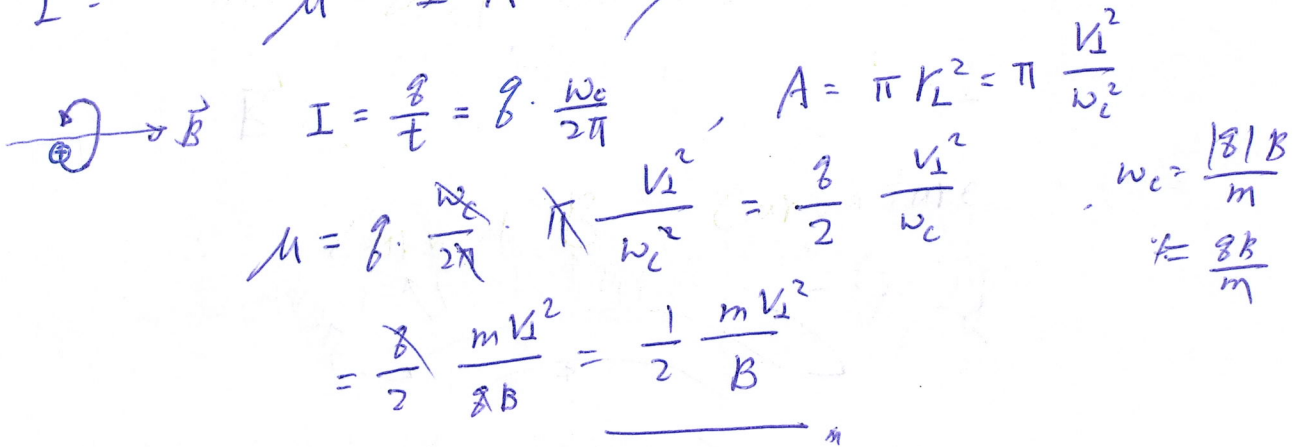 I = q/t = q · ω_c/2π , A = π r_L² = π V_⊥²/ω_c²
⊕ → B⃗
μ = q · ω_c/2π · π V_⊥²/ω_c² = q/2 V_⊥²/ω_c , ω_c = |q|B/m
= qB/m
= q/2 mV_⊥²/qB = 1/2 mV_⊥²/B